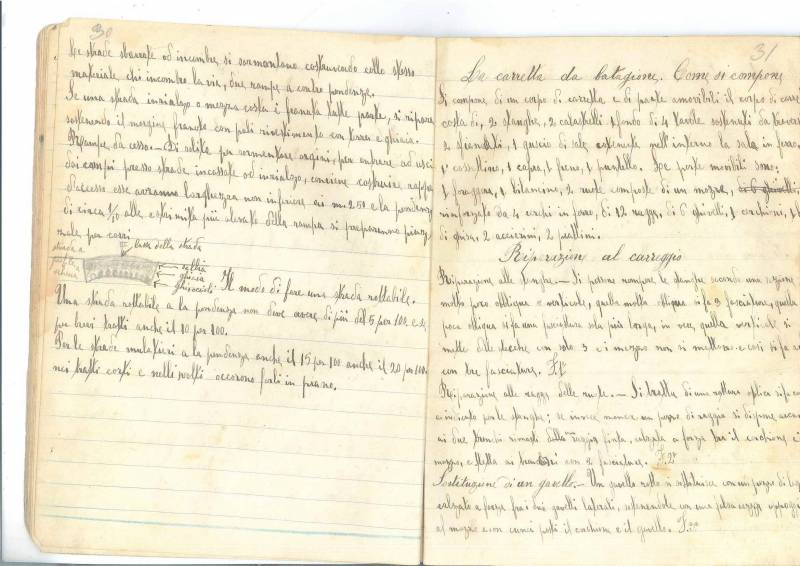 30
Le strade sbarrate od incombre, si sormontano costruendo collo stesso
materiale, chi incombra la via, due rampe a contro pendenza.
Se una strada in rialzo a mezza costa è franata dalle parate, si ripara
sostenendo il margine franato con pali rivestimento con terra e ghiaia.
Rampe d'accesso — Di solito per sormontare argini, per entrare ad usci
dai campi presso strade incassate od in rialzo, conviene costruire rappe
d'accesso esse avranno larghezza non inferiore ai m. 2.50 e la pendenza
di circa 1/10 alle estremità più elevate della rampa si prepareranno piazz
zuole per carri
strada a
base della strada
sabbia
ghiaia
Il modo di fare una strada rottabile.
Una strada rottabile a la pendenza non deve avere di più del 5 per 100 e se
per brevi tratti anche il 10 per 100.
Per le strade mulatieri a la pendenza anche il 15 per 100 anche il 20 per 100
nei tratti corti e nelli svolti occorono farli in piano.
31
La carretta da batagione. Come si compone
Si compone di un corpo di carretta e di parate amovibili il corpo di carre
costa di, 2 stanghe, 2 calastrelli 1 fondo di 4 tavole sostenuti da traverse
2 1 guscio di sale contenente nell'inferno la sala in ferro.
1 cassettino, 1 capra, 1 freno, 1 puntello. Le parte movibili sono:
1 foraggiera, 1 bilancino, 2 ruote composte di un mozzo,
rinforzato da 4 cerchi in ferro, di 12 raggi, di 6 gavelli, 1 cerchione, 1
di ghisa, 2 acciarini, 2 piattini.
Riparazioni al carreggio
Riparazione alle stanghe. — Si possono rompere le stanghe secondo una sezione
molto poco obliqua e verticale, quella molto obliqua si fa 3 fasciature, quella
poca obliqua si fa una fasciatura sola più lunga, in vece quella verticale si
mette delle stecche con solo 3 e i mezzo non si mettono e così si fa s
con tre fasciature. F.1ª
Riparazione alle raggi delle ruote. — Si tratta di una rottura oblica si fa co
a indicato per le stanghe; se invece manca un pezzo di raggio si dispone accan
ai due tronchi rimasti della raggio finta, calzata a forza tra il cerchione e i
mozzo, e stretta ai tronconi con 2 fasciature. F.2ª
Sostituzione di un gavello. — Un gavello rotto si sostituisce con un pezzo di leg
calzato a forza fra i due gavelli laterali, sostenendole con una appoggi
al mozzo e con cunei posti il e il gavello. F.3ª